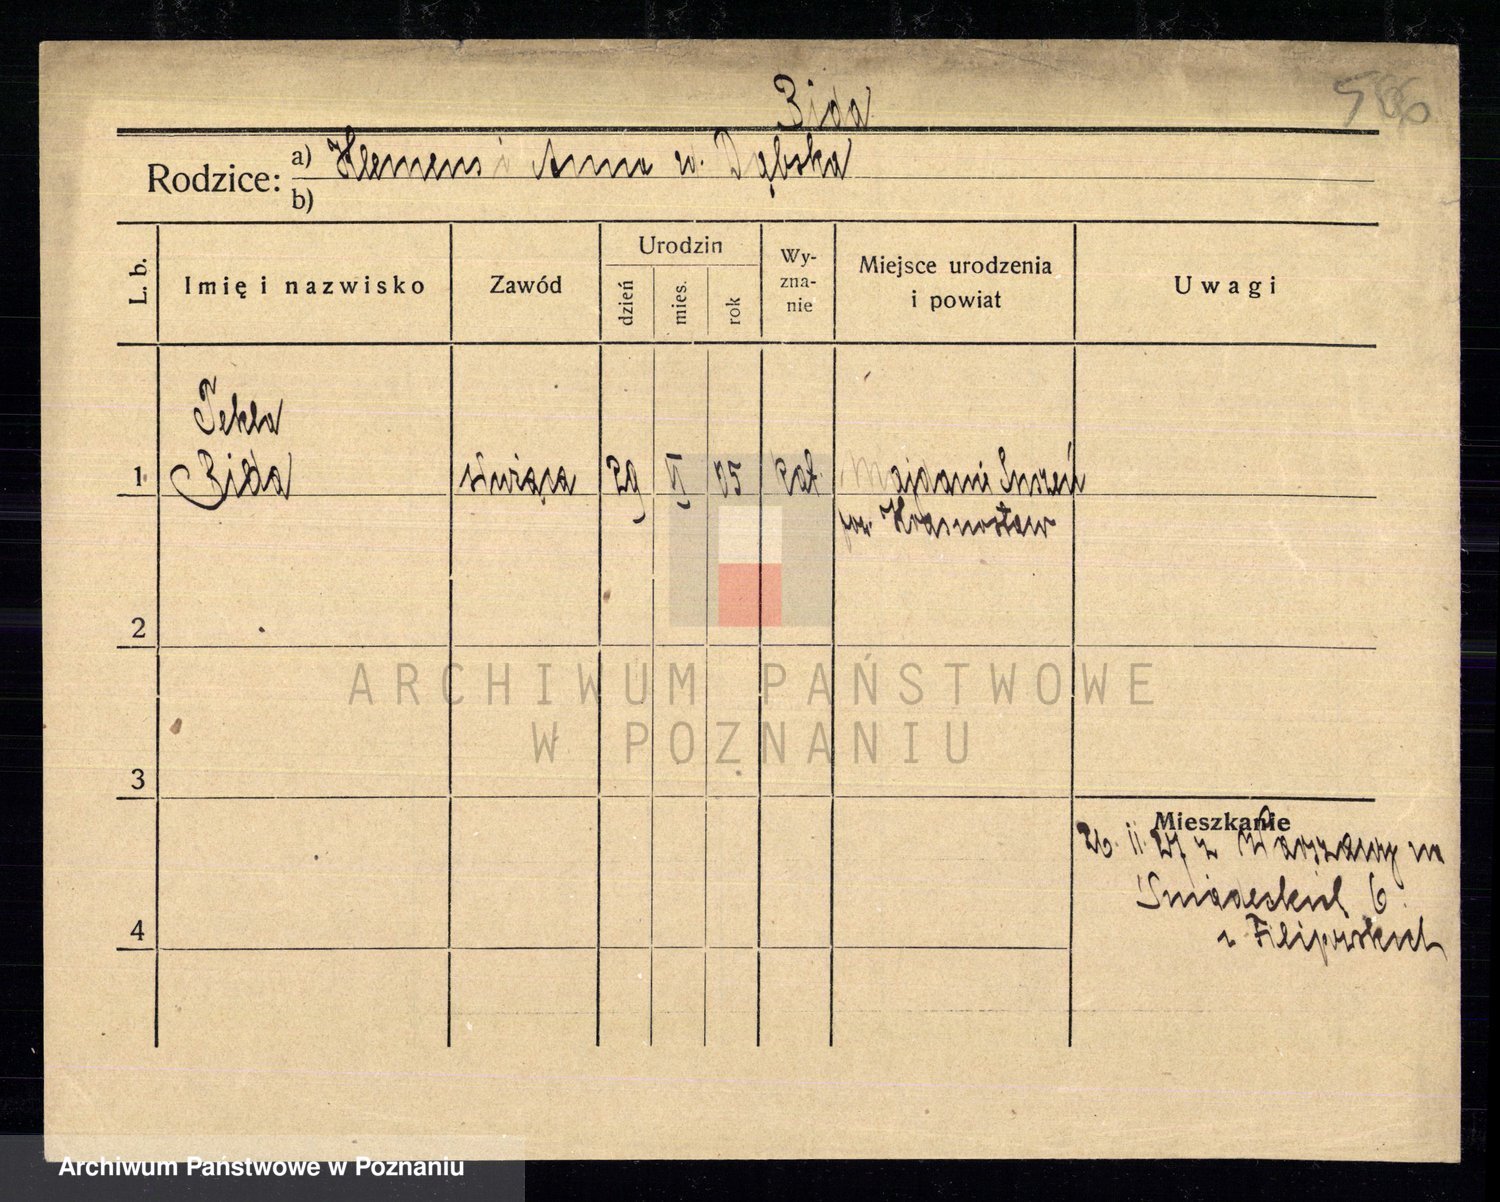 Bida
586
Rodzice: a) Klemens i Anna w. Dąbska
b)
L. b.
Imię i nazwisko
Zawód
Urodzin
dzień
mies.
rok
Wy-
zna-
nie
Miejsce urodzenia
i powiat
Uwagi
Tekla
1 Bida służąca 29 VI 05 kat. Majdanie
pow. Krasnostaw
2
3
4
Mieszkanie
26. 11. 27 z Warszawy na
Śniadeckich 6.
z Filipowskich
ARCHIWUM PAŃSTWOWE
W POZNANIU
Archiwum Państwowe w Poznaniu